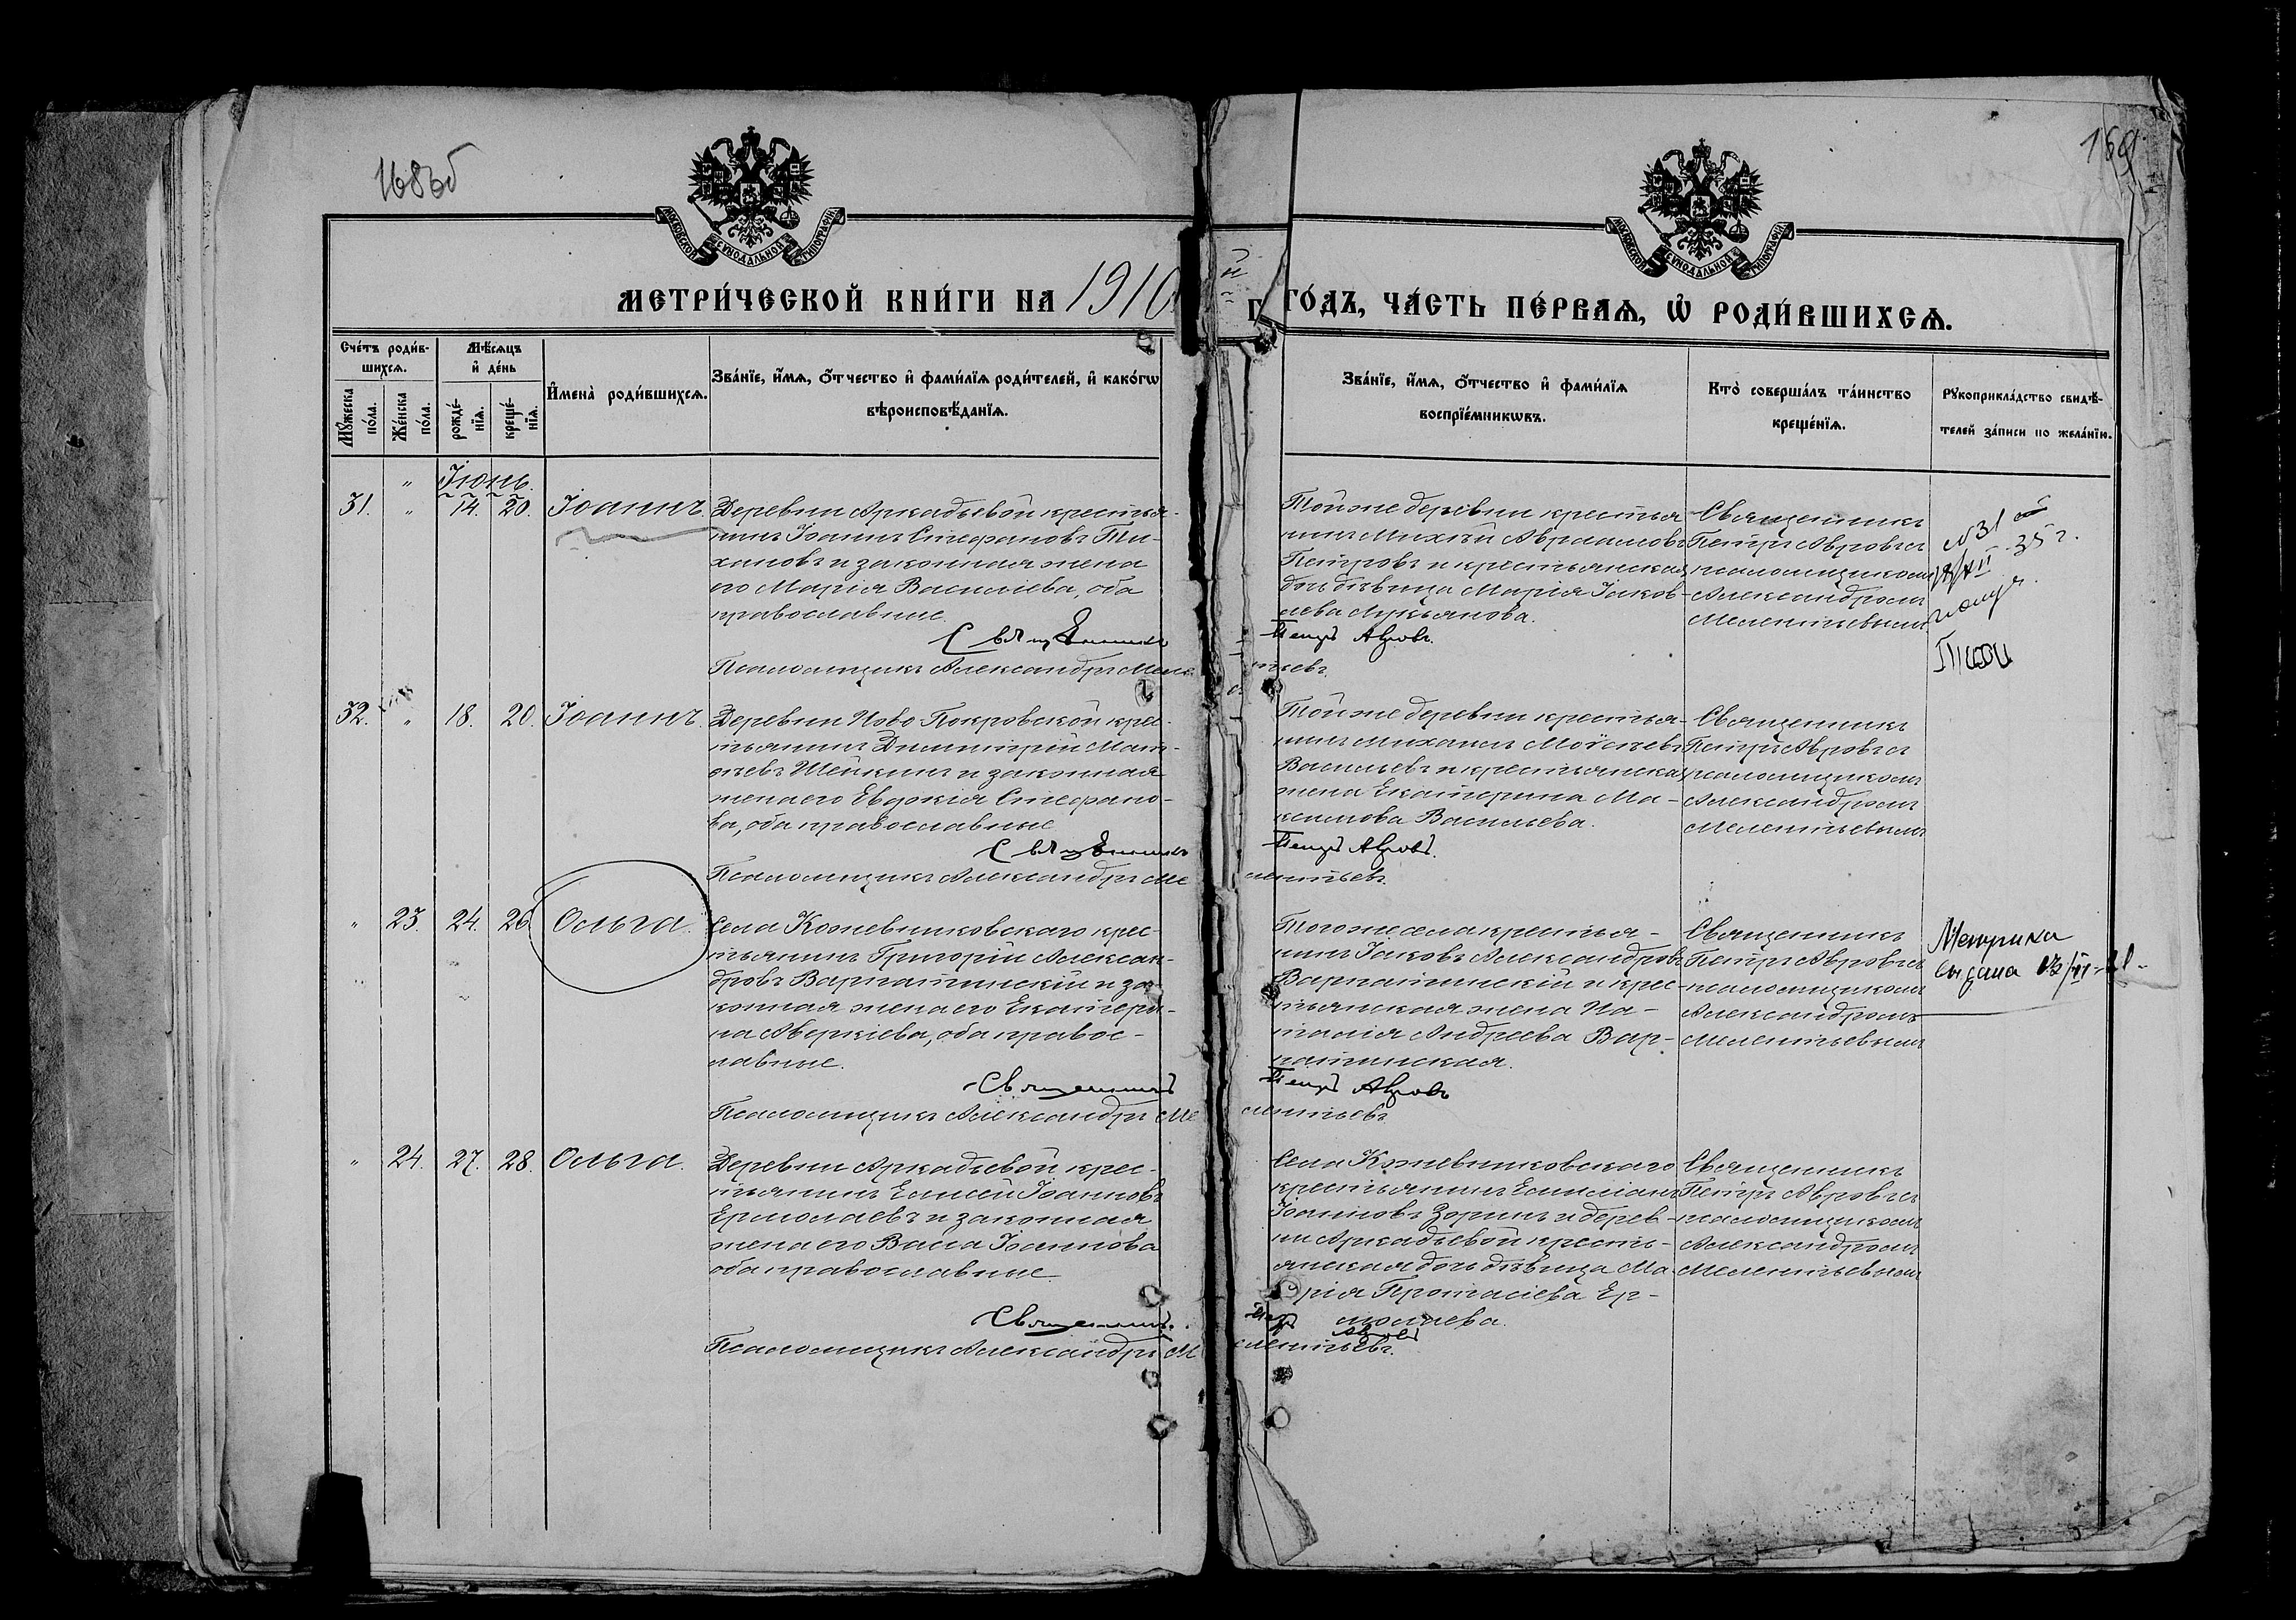 168об
169
МОСКОВСКОЙ СѴНОДАЛЬНОЙ ТИПОГРАФІИ
МОСКОВСКОЙ СѴНОДАЛЬНОЙ ТИПОГРАФІИ
МЕТРИ́ЧЕСКОЙ КНИ́ГИ НА 1910
ГО́ДЪ, ЧА́СТЬ ПЕ́РВАѦ, Ѡ҆ РОДИ́ВШИХСѦ.
Сче́тъ роди́в-
шихсѧ.
Мꙋ́жеска по́ла.
Же́нска по́ла.
Мѣ́сѧцъ
и҆ де́нь
рожде́-нїѧ.
креще́-нїѧ.
И҆мена̀ роди́вшихсѧ.
Зва́нїе, и҆́мѧ, ѻ҆́тчество и҆ фами́лїѧ роди́телей, и҆ како́гѡ
вѣроисповѣ́данїѧ.
Зва́нїе, и҆́мѧ, ѻ҆́тчество и҆ фами́лїѧ
воспрїе́мникѡвъ.
Кто̀ соверша́лъ та́инство
креще́нїѧ.
Рꙋкоприкла́дство свидѣ́-
телей за́писи по жела́нїю.
Іюнь.
31. " 14. 20. Іоаннъ.
Деревни Аркадьевой крестья-
нинъ Іоаннъ Стефановъ Ти-
хановъ и законная жена
его Марія Васильева, оба
православные.
Священникъ Петръ Авровъ.
Псаломщикъ Александръ Мелентьевъ.
Той же деревни крестья-
нинъ Михѣй Авраамовъ
Петровъ и крестьянская
дочь дѣвица Марія Іаков-
лева Лукьянова.
Священникъ
Петръ Авровъ съ
псаломщикомъ
Александромъ
Мелентьевымъ
№31
35 г.
32. " 18. 20. Іоаннъ.
Деревни Ново Покровской крес-
тьянинъ Димитрій Мат-
ѳеевъ Шейкинъ и законная
жена его Евдокія Стефано-
ва, оба православные
Священникъ Петръ Авровъ.
Псаломщикъ Александръ Мелентьевъ.
Той же деревни крестья-
нинъ Михаилъ Моѵсеевъ
Васильевъ и крестьянская
жена Екатерина Ма-
ксимова Васильева.
Священникъ
Петръ Авровъ съ
псаломщикомъ
Александромъ
Мелентьевымъ
" 23. 24. 26. Ольга.
Села Кожевниковскаго крес-
тьянинъ Григорій Алексан-
дровъ Варнатинскій и за-
конная жена его Екатери-
на Аверкіева, оба правос-
лавные.
Священникъ Петръ Авровъ
Псаломщикъ Александръ Мелентьевъ.
Того же села крестья-
нинъ Іаковъ Александровъ
Варнатинскій и крес-
тьянская жена На-
талія Андреева Вар-
натинская.
Священникъ
Петръ Авровъ съ
псаломщикомъ
Александромъ
Мелентьевымъ
Метрика
выдана
" 24. 27. 28. Ольга.
Деревни Аркадьевой крес-
тьянинъ Елисей Іоанновъ
Ермолаевъ и законная
жена его Васса Іоаннова
оба православные
Священникъ Петръ Авровъ
Псаломщикъ Александръ Мелентьевъ.
Села Кожевниковскаго
крестьянинъ Емиліанъ
Іоанновъ Зоринъ и дерев-
ни Аркадьевой кресть-
янская дочь дѣвица Ма-
рія Протасіева Ер-
молаева.
Священникъ
Петръ Авровъ съ
псаломщикомъ
Александромъ
Мелентьевымъ